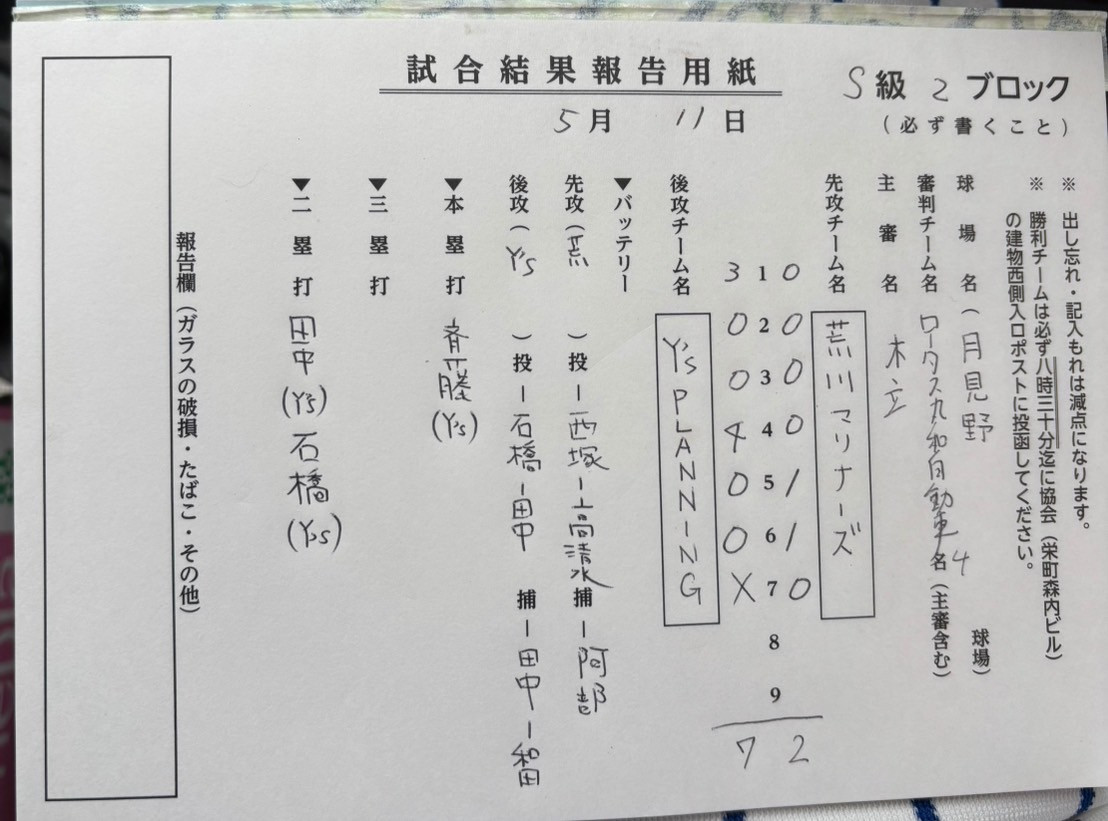 試合結果報告用紙
S級 2 ブロック
(必ず書くこと)
5月 11日
※ 出し忘れ・記入もれは減点になります。
※ 勝利チームは必ず八時三十分迄に協会(栄町森内ビル)
の建物西側入口ポストに投函してください。
球場名(月見野 球場)
審判チーム名 ロータス九和自動車 4名(主審含む)
主審名 木立
先攻チーム名 荒川マリナーズ
0 0 0 0 1 1 0 2
1 2 3 4 5 6 7 8 9
3 0 0 4 0 0 X 7
後攻チーム名 Y's PLANNING
▼バッテリー
先攻(荒)投―西塚―高清水 捕―阿部
後攻(Y's)投―石橋―田中 捕―田中―和田
▼本塁打 斉藤(Y's)
▼三塁打
▼二塁打 田中(Y's) 石橋(Y's)
報告欄(ガラスの破損・たばこ・その他)